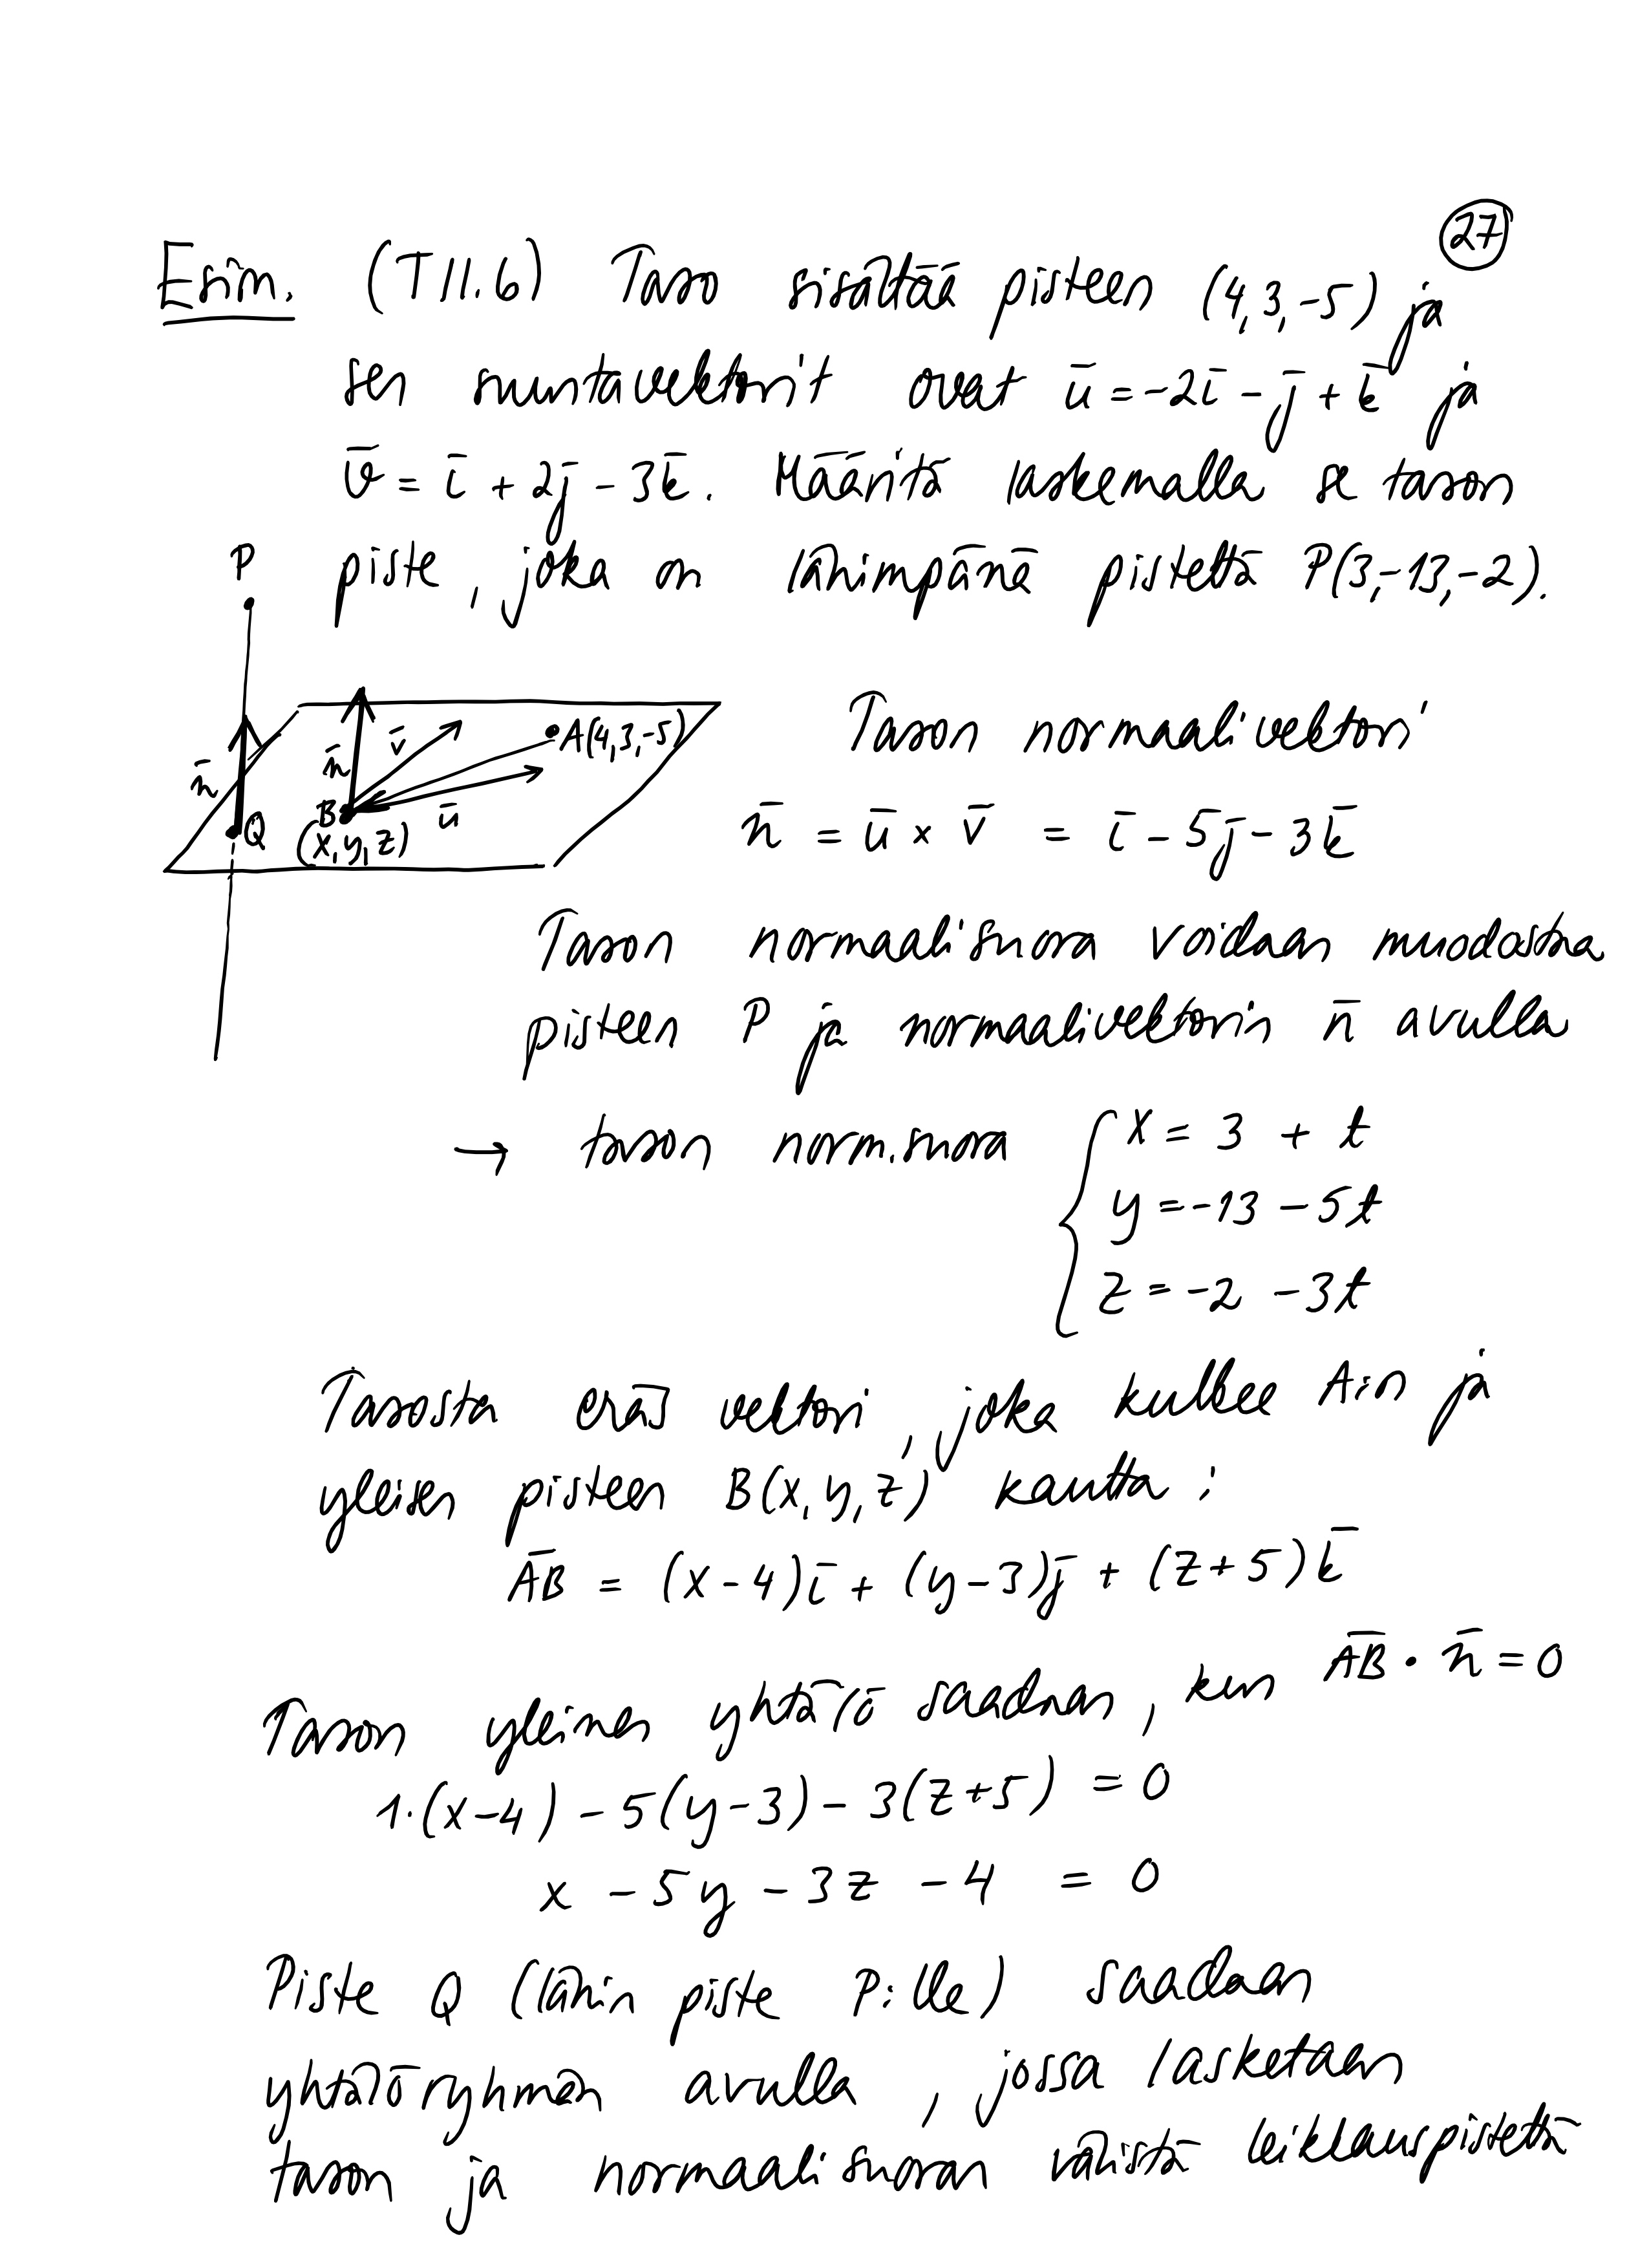 27
Esim. (T11.6) Taso sisältää pisteen (4,3,-5) ja
sen suuntavektorit ovat ū = -2ī - j̄ + k̄ ja
v̄ = ī + 2j̄ - 3k̄. Määritä laskemalla se tason
piste, joka on lähimpänä pistettä P(3,-13,-2).
P
n̄
Q
n̄
v̄
A(4,3,-5)
B
ū
(x,y,z)
Tason normaalivektori
n̄ = ū × v̄ = ī - 5j̄ - 3k̄
Tason normaalisuora voidaan muodostaa
pisteen P ja normaalivektorin n̄ avulla
→ tason norm.suora
x = 3 + t
y = -13 - 5t
z = -2 - 3t
Tasosta eräs vektori, joka kulkee A:n ja
yleisen pisteen B(x,y,z) kautta:
A̅B̅ = (x-4)ī + (y-3)j̄ + (z+5)k̄
Tason yleinen yhtälö saadaan, kun A̅B̅ · n̄ = 0
1·(x-4) - 5(y-3) - 3(z+5) = 0
x - 5y - 3z - 4 = 0
Piste Q (lähin piste P:lle) saadaan
yhtälöryhmän avulla, jossa lasketaan
tason ja normaalisuoran välistä leikkauspistettä